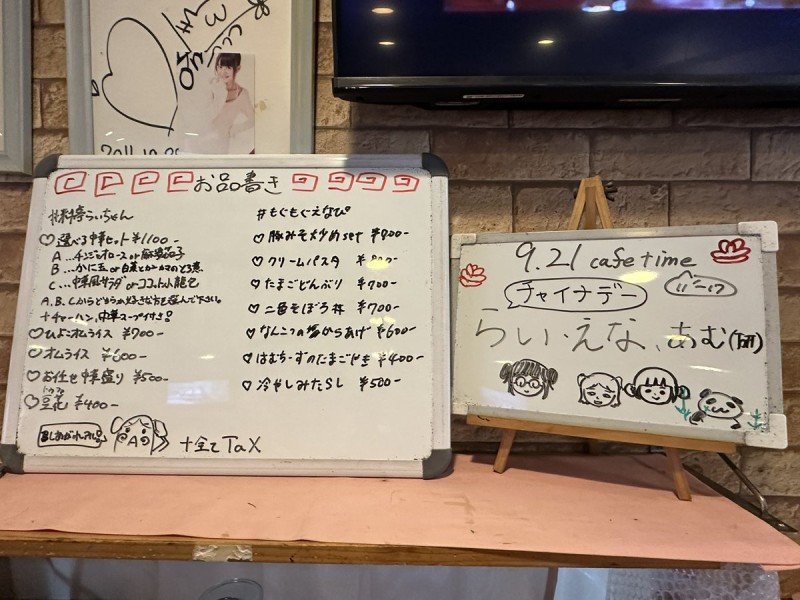 2011.10.
お品書き
選べる中華セット ¥1100-
A...チンジャオロース or 麻婆茄子
B...かに玉 or
C...中華風サラダ or ココット小籠包
A, B, Cからどちらか好きな方を選んで下さい。
+チャーハン,中華スープ付き!
ひよこオムライス ¥700-
オムライス ¥600-
お任せ中華盛り ¥500-
トウファ
豆花 ¥400-
+全てTaX
#もぐもぐえなぴ
豚みそ炒めset ¥900-
クリームパスタ
たまごどんぶり ¥700-
二色そぼろ丼 ¥700-
なんこつの塩からあげ ¥600-
はむちーずのたまごやき ¥400-
冷やしみたらし ¥500-
9.21 cafe time
チャイナデー
らい・えな、あむ(研)